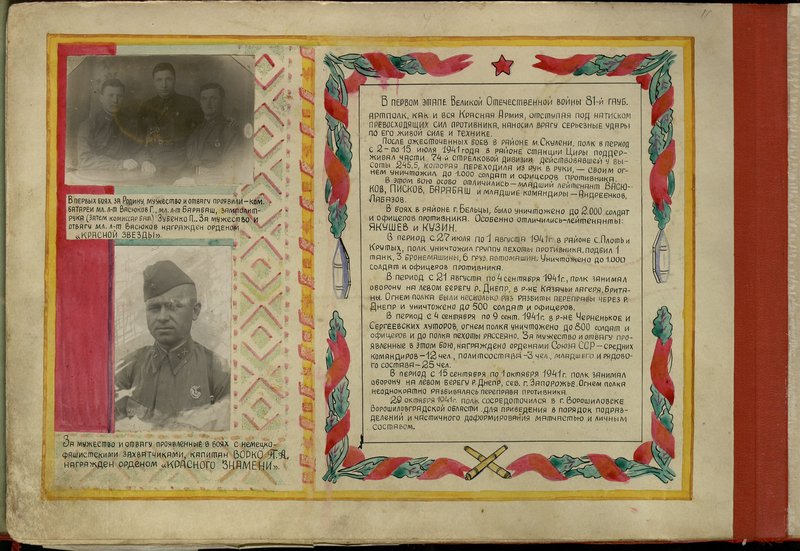 Впервых боях за Родину, мужество и отвагу проявили – ком.
батареи мл. л-т Васюков Г., мл. л-т Барабаш, замполит-
рука (затем командования) Зубенко П., За мужество и
отвагу мл. л-т Васюков награжден орденом
„КРАСНОЙ ЗВЕЗДЫ".
За мужество и отвагу проявленные в боях с немецко-
фашистскими захватчиками, капитан БОРКО А.А,
награжден орденом „КРАСНОГО ЗНАМЕНИ".
В первом этапе Великой Отечественной войны 81-й гауб.
артполк, как и вся Красная Армия, отступая под натиском
превосходящих сил противника, наносил врагу серьезные удары
по его живой силе и технике.
После ожесточенных боев в районе м. Скулени, полк в период
с 2 – по 15 июля 1941 года в районе станции Цыры поддер-
живал части 74-й стрелковой дивизии, действовавшей у вы-
соты 245,5, которая переходила из рук в руки, – своим ог-
нем уничтожил до 1.000 солдат и офицеров противника.
В этом бою особо отличились – младший лейтенант ВАСЮ-
КОВ, ПИСКОВ, БАРАБАШ и младшие командиры – Андреенков,
Лабазов.
В боях в районе г. Бельцы, было уничтожено до 2.000 солдат
и офицеров противника. Особенно отличились – лейтенанты:
ЯКУШЕВ и КУЗИН.
В период с 27 июля по 1 августа 1941г. в районе с. Плоть и
Крутых, полк уничтожил группу пехоты противника, подбил 1
танк, 3 бронемашины, 6 груз. автомашин. Уничтожено до 1.000
солдат и офицеров противника.
В период с 21 августа по 4 сентября 1941г., полк занимал
оборону на левом берегу р. Днепр, в р-не Казачьи лагеря, Брита-
ны. Огнем полка были несколько раз разбиты переправы через р.
Днепр и уничтожено до 500 солдат и офицеров.
В период с 4 сентября по 9 сент. 1941г. в р-не Черненькое и
Сергеевских хуторов, огнем полка уничтожено до 800 солдат и
офицеров и до полка пехоты рассеяно. За мужество и отвагу про-
явленные в этом бою, награждено орденами Союза ССР – средних
командиров – 12 чел., политсостава – 3 чел, младшего и рядово-
го состава – 25 чел.
В период с 15 сентября по 1 октября 1941г. полк занимал
оборону на левом берегу р. Днепр, сев. г. Запорожье. Огнем полка
неоднократно разбивалась переправа противника.
29 октября 1941г. полк сосредоточился в г. Ворошиловске
Ворошиловградской области для приведения в порядок подраз-
делений и частичного доформирования матчастью и личным
составом.